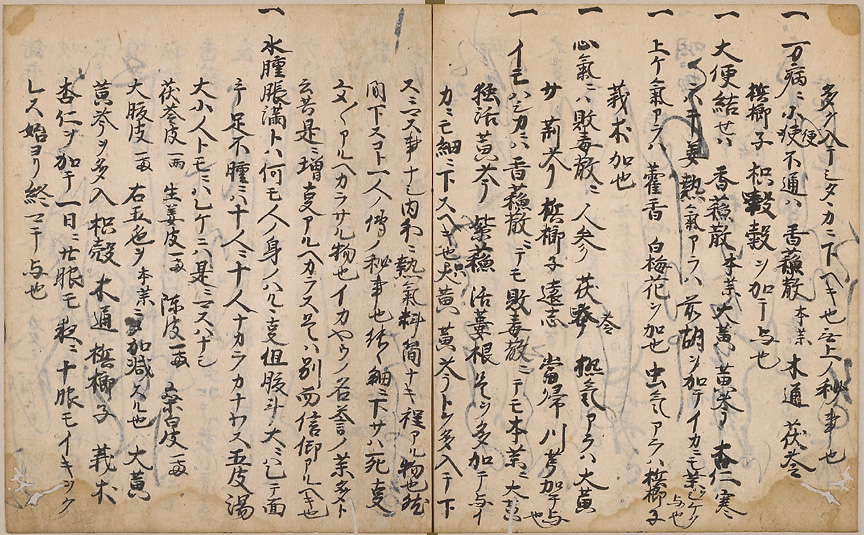 多ク入テシタヽカニ下ヘキ也云上ノ秘事也
一 万病ニ小便不通ハ 香蘓散 本業 木通 茯苓
檳榔子 枳穀ヲ加テ与也
一 大便結セハ 香蘓散 本業 大黄 黄芩 杏仁 寒
ハ干姜 熱氣アラハ 前胡ヲ加テイカニモ 与也
一 上ケ氣アラハ 藿香 白梅花ヲ加也 虫氣アラハ 檳榔子
莪朮加也
一 心氣ニハ敗毒散ニ 人参 茯苓 熱氣アラハ 大黄
サ 荊芥 檳榔子 遠志 當帰 川芎加テ与也
一 イモハシカニハ 香蘓散ニテモ 敗毒散ニテモ 本業ニ大黄也
独活 黄芩 紫蘓 活蔞根 是ヲ多加テ与イ
カニモ細ニ下スヘキ也 大黄 黄芩トヲ多入テ下
スニマス事ナシ内和ニ熱氣料簡ナキ程アル物也
間下スコト一人ノ傳ノ秘事也 能々細ニ下サハ死支
文々アルヘカラサル物也イカヤウノ名誉ノ業多ト
云共是ニ増支アルヘカラス是ハ別而信仰アルヘキ也
一 水腫脹満トハ何モ人ノ身ノハルヽ支但腹斗大ニシテ面
手足不腫ニハ十人ニ十人ナカラカナワス五皮湯
大小人トモニハシケニハ是ニマスハナシ
茯苓皮一両 生姜皮一両 陳皮一両 桑白皮一両
大腹皮一両 右五色ヲ 本業ニ加減スル也 大黄
黄芩ヲ多入 枳殻 木通 檳榔子 莪朮
杏仁ヲ加テ一日ニ廿服モ 夜ニ十服モイキツク
レス始ヨリ終マテ与也